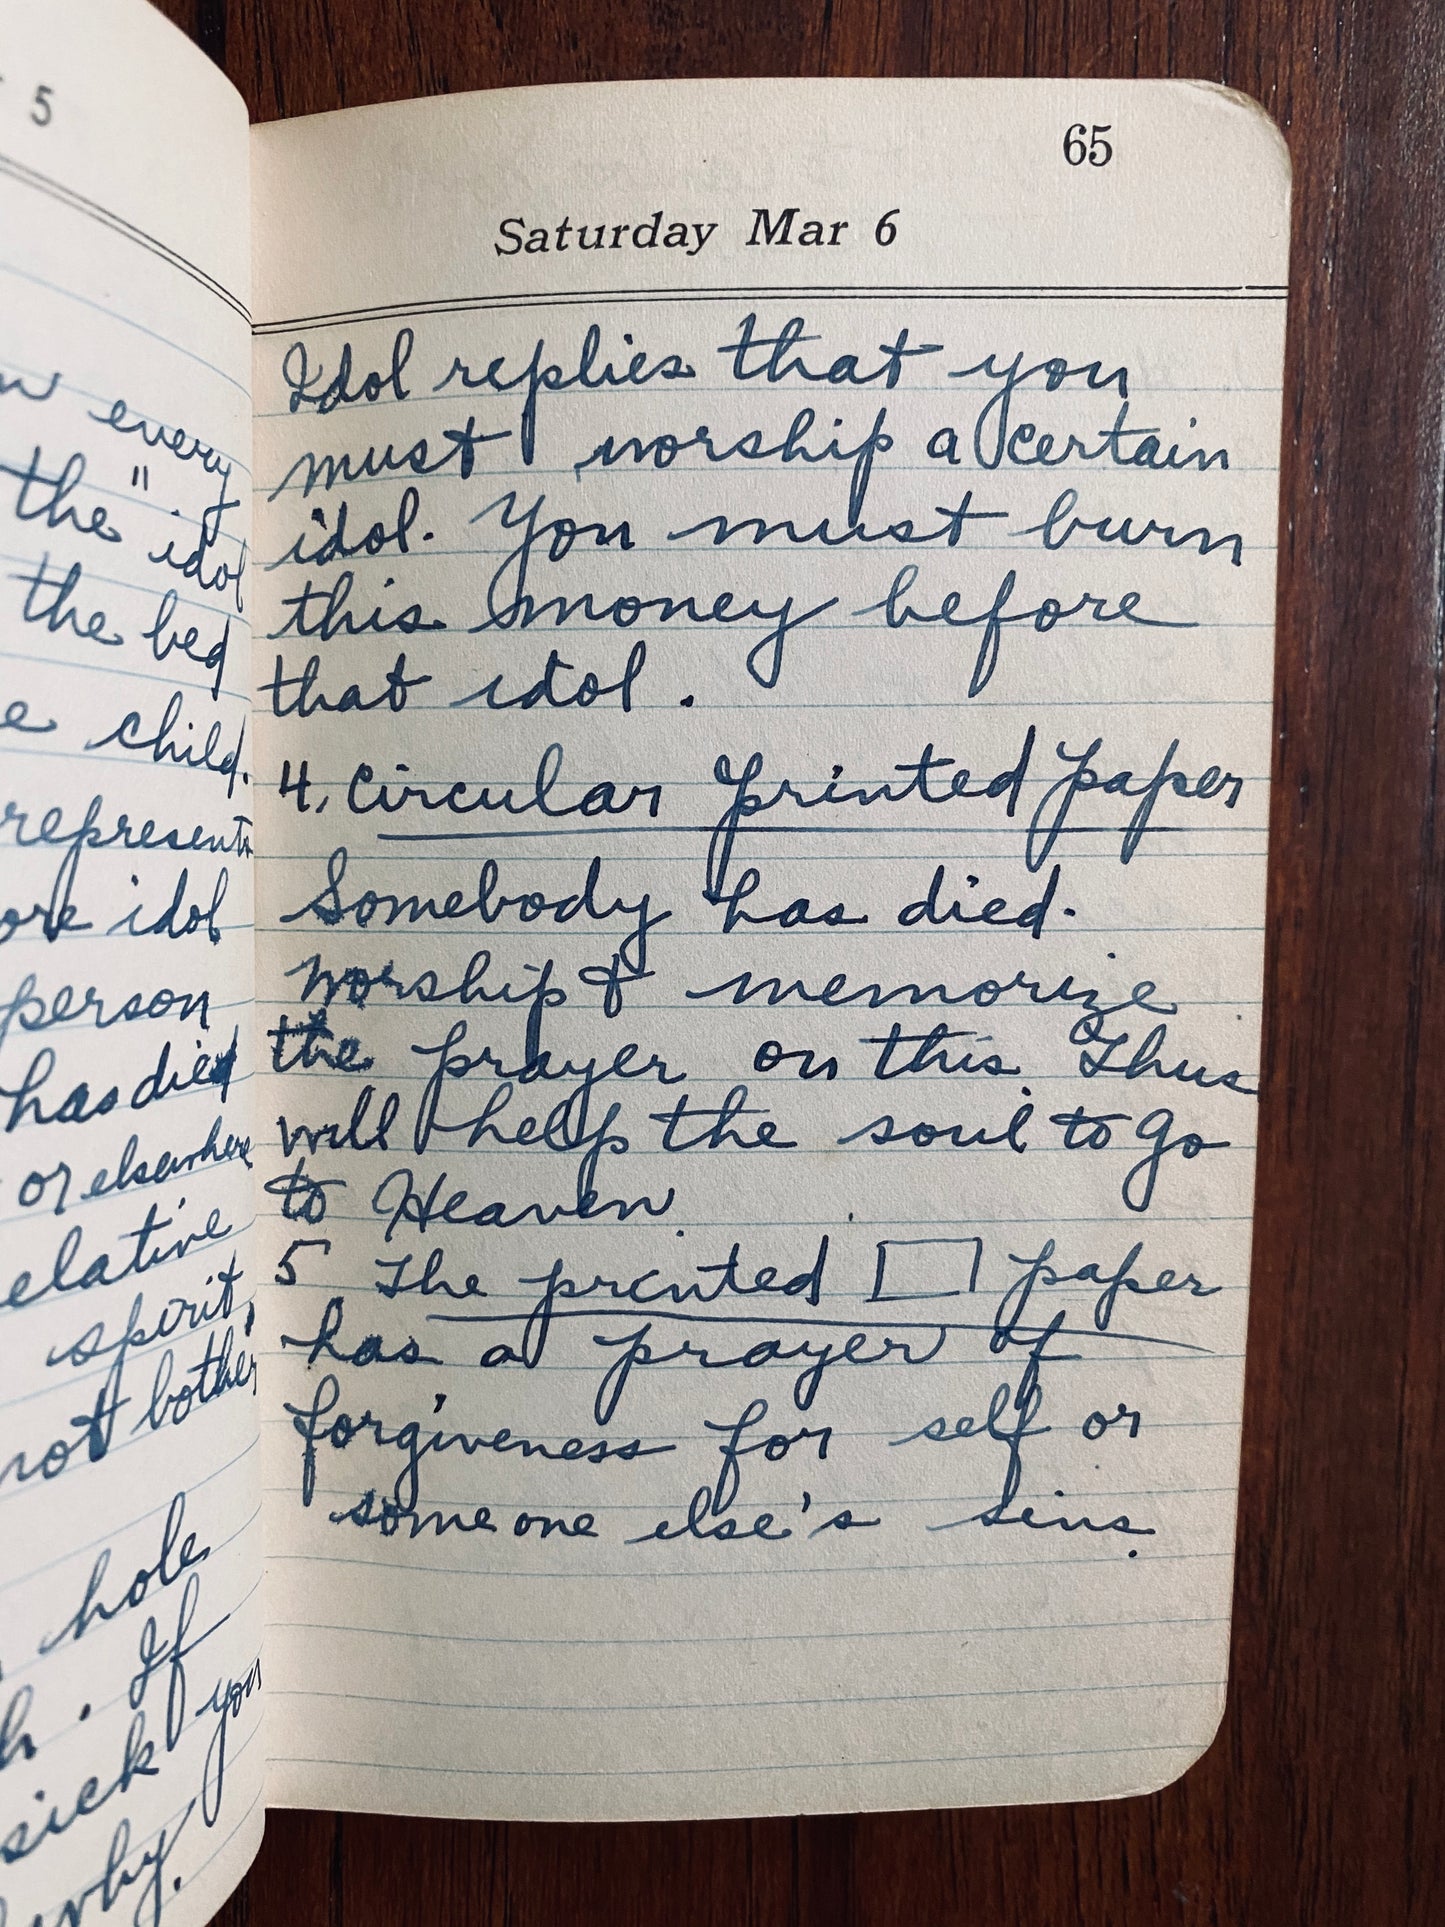 5
every
the "idol
the bed
child.
represents
idol
person
has died
or elsewhere
spirit,
not bother
hole
. If
sick you
why.
65
Saturday Mar 6
Idol replies that you
must worship a certain
idol. You must burn
this money before
that idol.
4. Circular printed paper
Somebody has died.
Worship & memorize
the prayer on this. Thus
will help the soul to go
to Heaven.
5 The printed paper
has a prayer of
forgiveness for self or
someone else's sins.